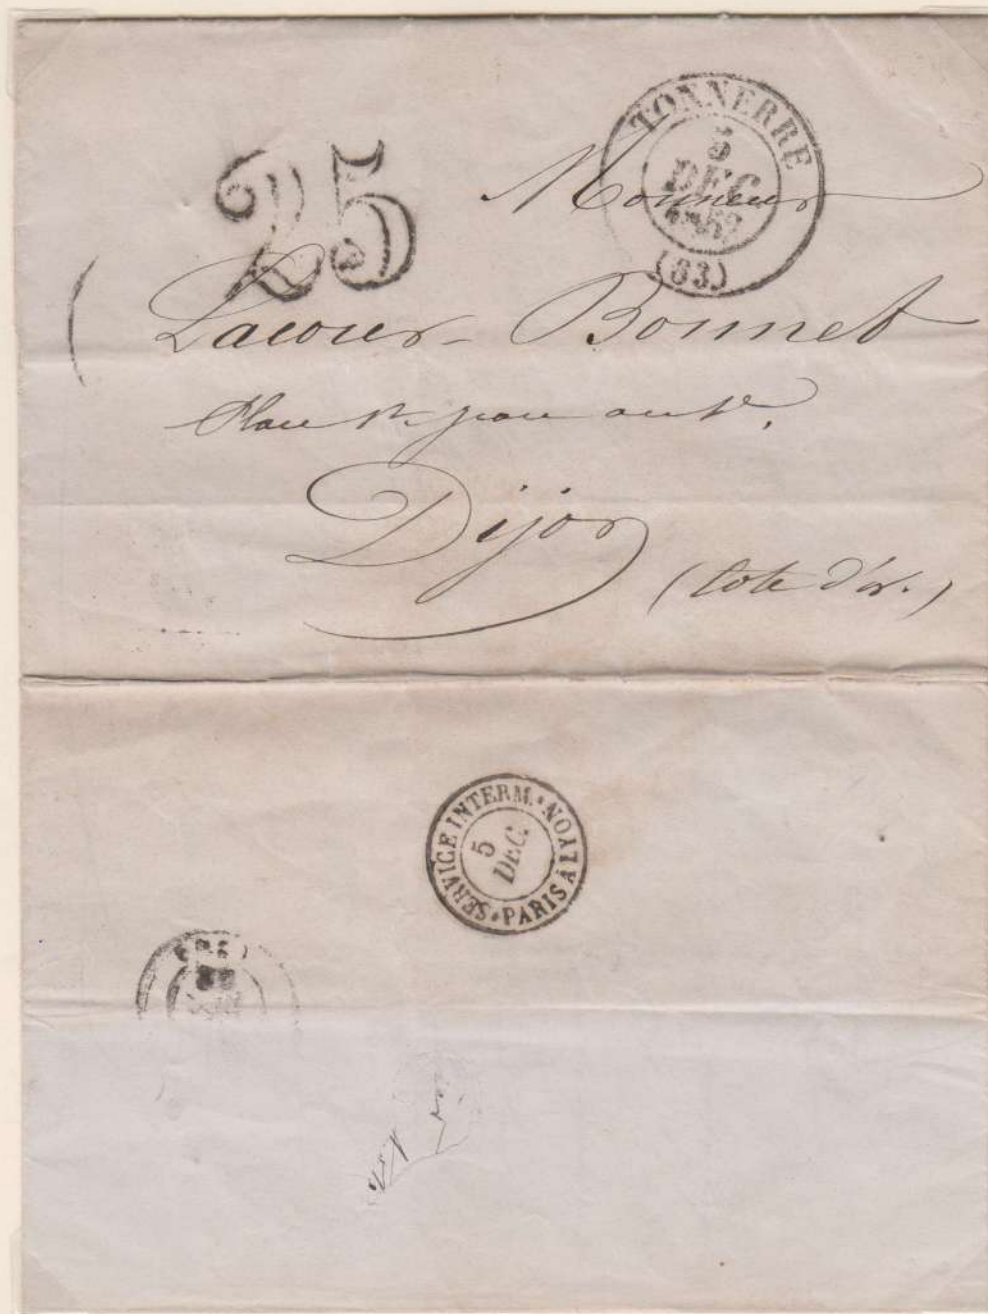 25
TONNERRE
5
DEC.
(83)
Monsieur
Lacour-Bonnet
Place St Jean
Dijon
(Cote d'or.)
SERVICE INTERM. PARIS À LYON
5
DEC.